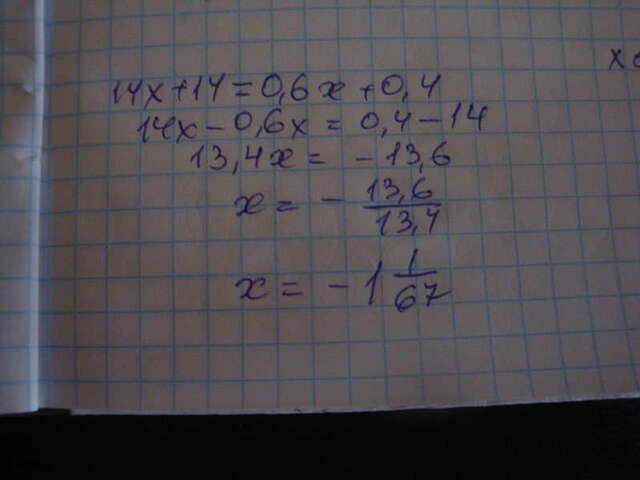 14x+14=0,6x+0,4
14x-0,6x=0,4-14
13,4x=-13,6
x=-13,6/13,4
x=-1 1/67